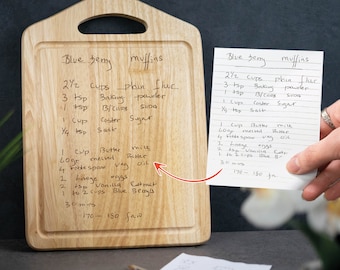 Blue Berry muffins
2½ cups plain flour
3 tsp Baking powder
1 tsp B/Carb Soda
1 Cup Caster Sugar
¼ tsp Salt
1 Cup Butter milk
60gr melted Butter
4 tablespoon veg oil
2 Large eggs
2 tsp Vanilla Extract
1 to 2 cups Blue Berrys
30 mins
170 - 180 fan
Blue Berry muffins
2½ cups plain flour
3 tsp Baking powder
1 tsp B/Carb Soda
1 Cup Caster Sugar
¼ tsp Salt
1 Cup Butter milk
60gr melted Butter
4 tablespoon veg oil
2 Large eggs
2 tsp Vanilla
1 to 2 cups Blue
30 mins
170 - 180 fa